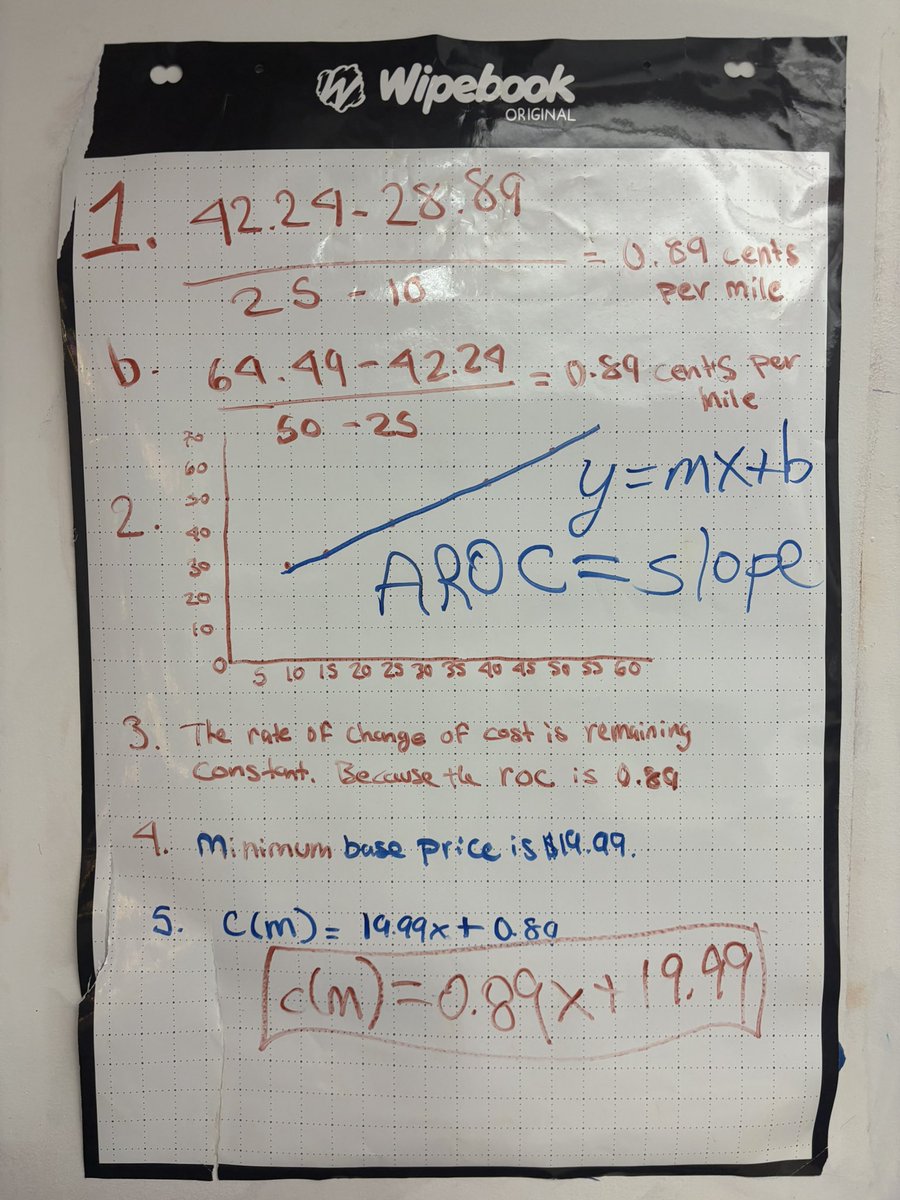 Wipebook
ORIGINAL
1. 42.24 - 28.89
25 - 10
= 0.89 cents
per mile
b. 64.49 - 42.24
50 - 25
= 0.89 cents per
mile
2.
70
60
50
40
30
20
10
0
5 10 15 20 25 30 35 40 45 50 55 60
y=mx+b
AROC=slope
3. The rate of change of cost is remaining
constant. Because the roc is 0.89
4. Minimum base price is $19.99.
5. C(m) = 19.99x + 0.89
c(m)=0.89x+19.99